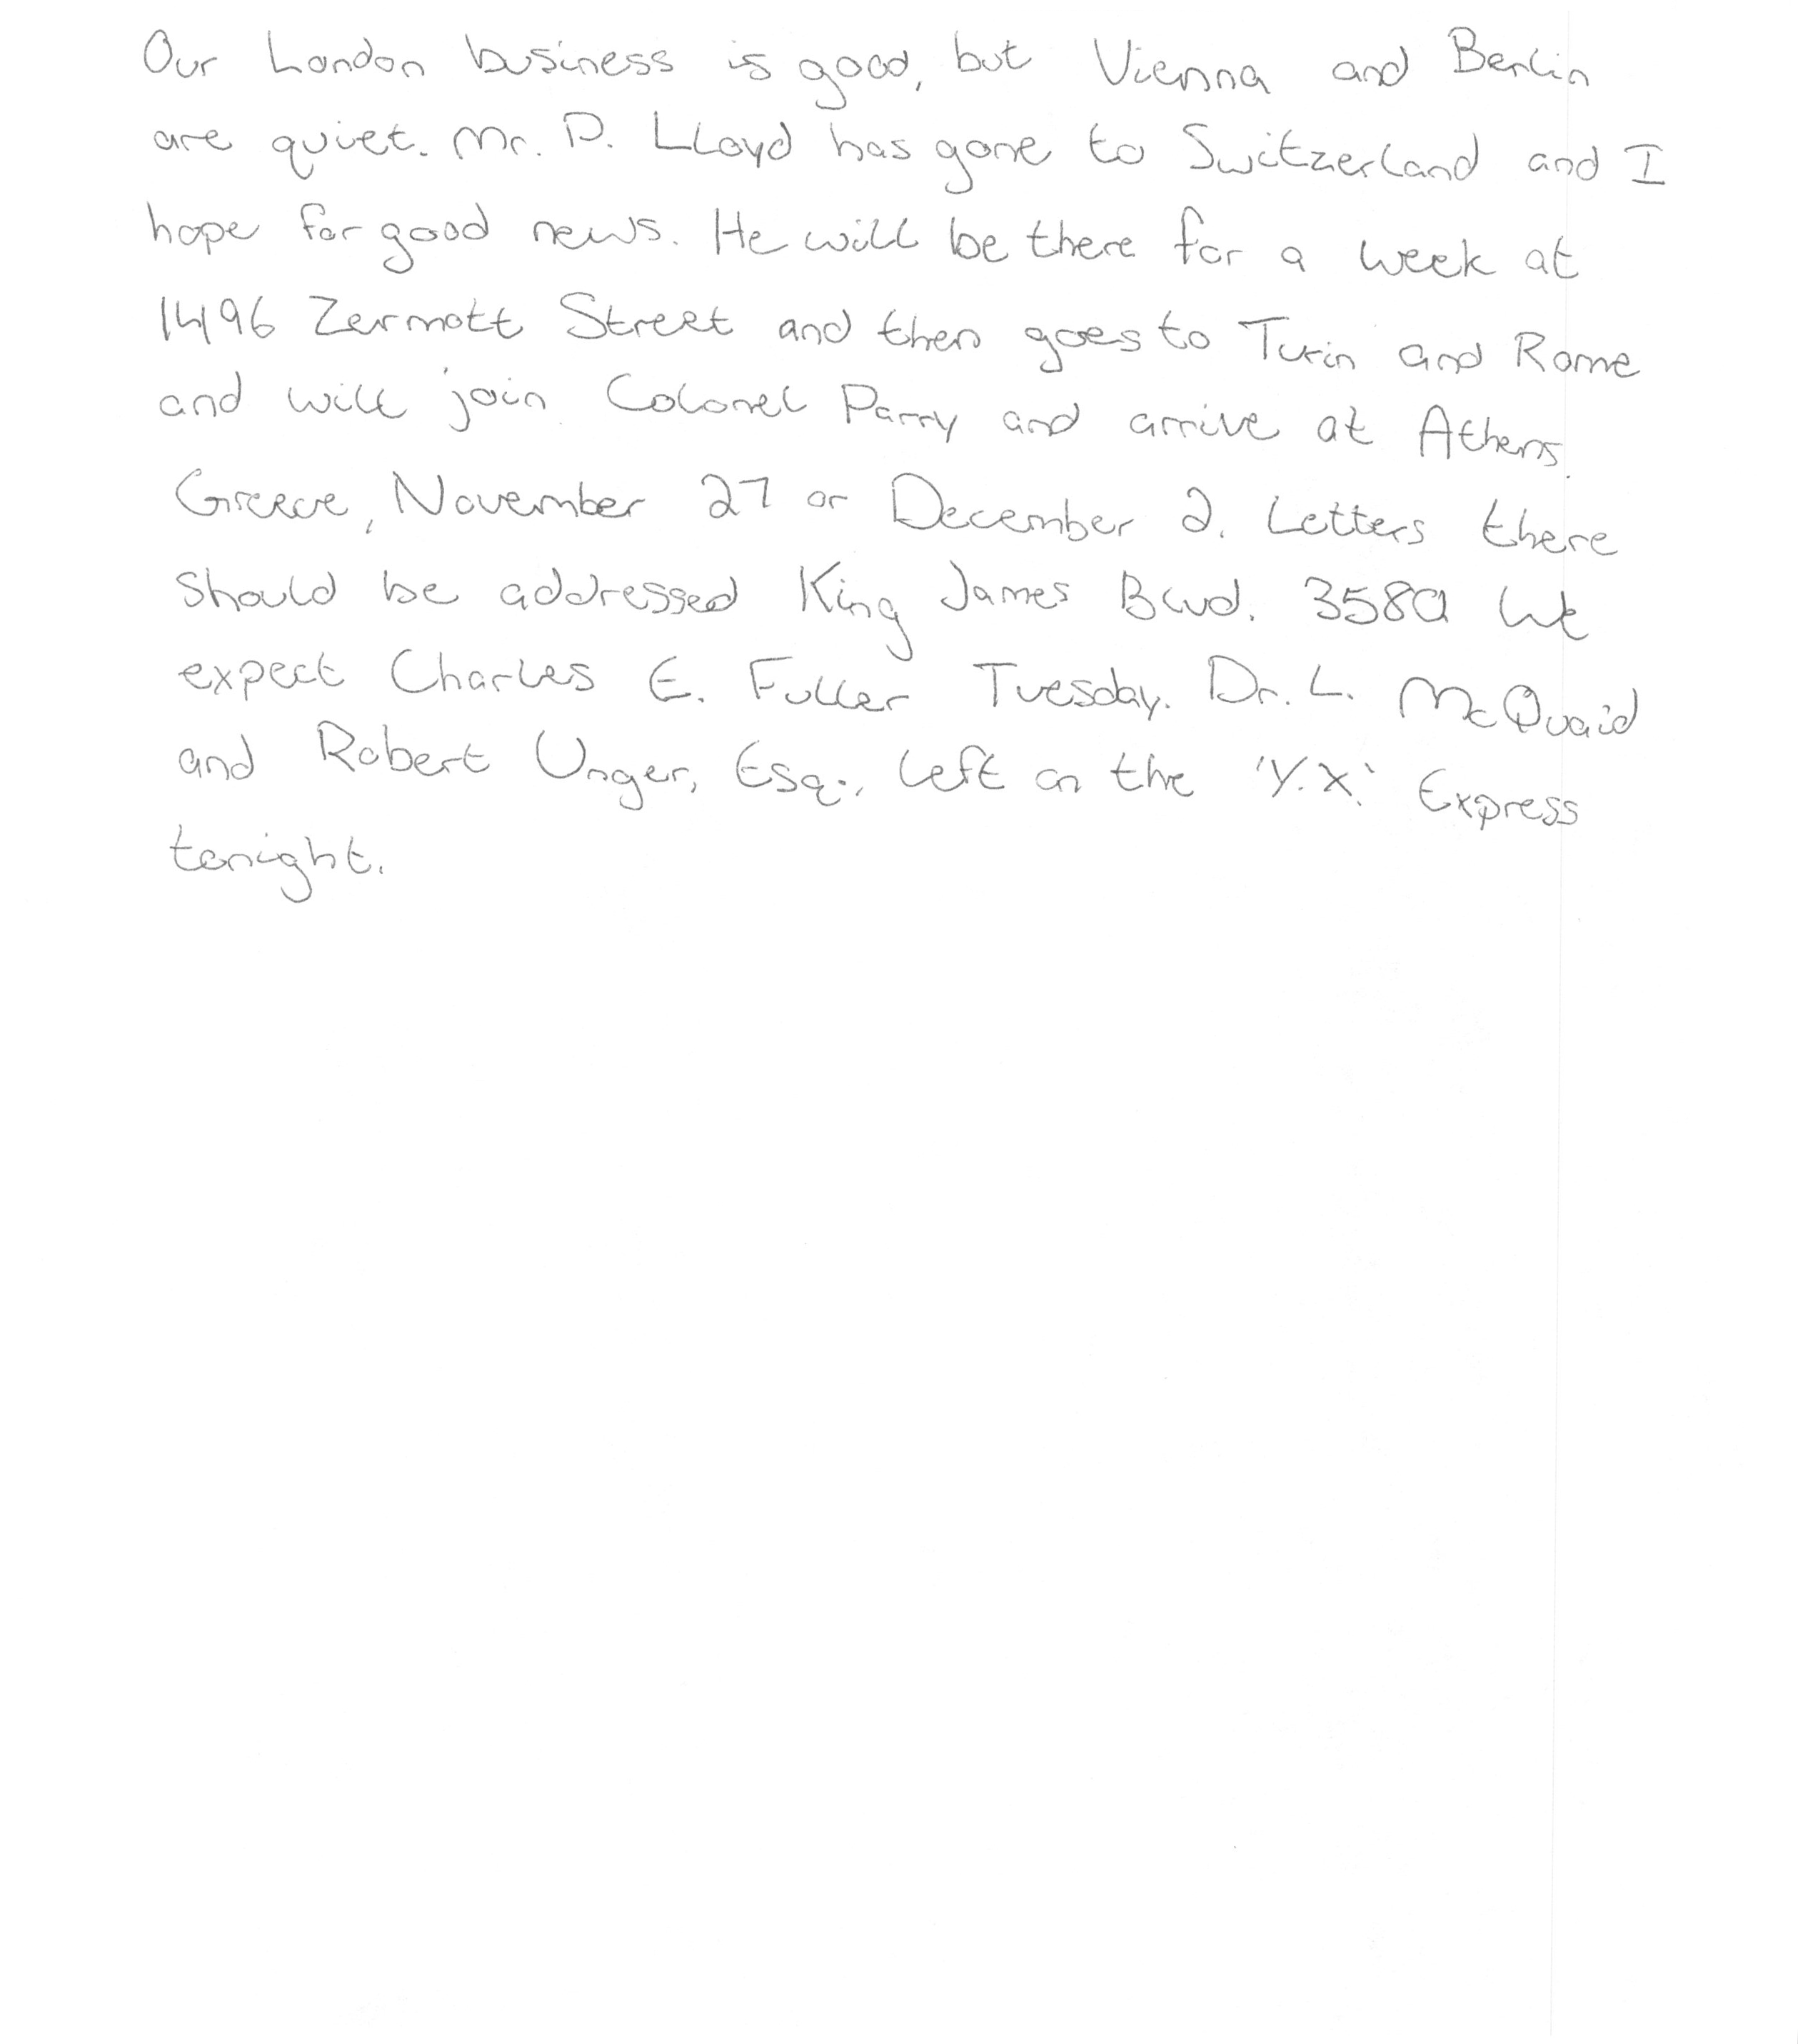 Our London business is good, but Vienna and Berlin
are quiet. Mr. D. Lloyd has gone to Switzerland and I
hope for good news. He will be there for a week at
1496 Zermott Street and then goes to Turin and Rome
and will join Colonel Parry and arrive at Athens,
Greece, November 27 or December 2. Letters there
should be addressed King James Blvd. 3580 We
expect Charles E. Fuller Tuesday. Dr. L. McQuaid
and Robert Unger, Esq., left on the 'Y.X.' Express
tonight.